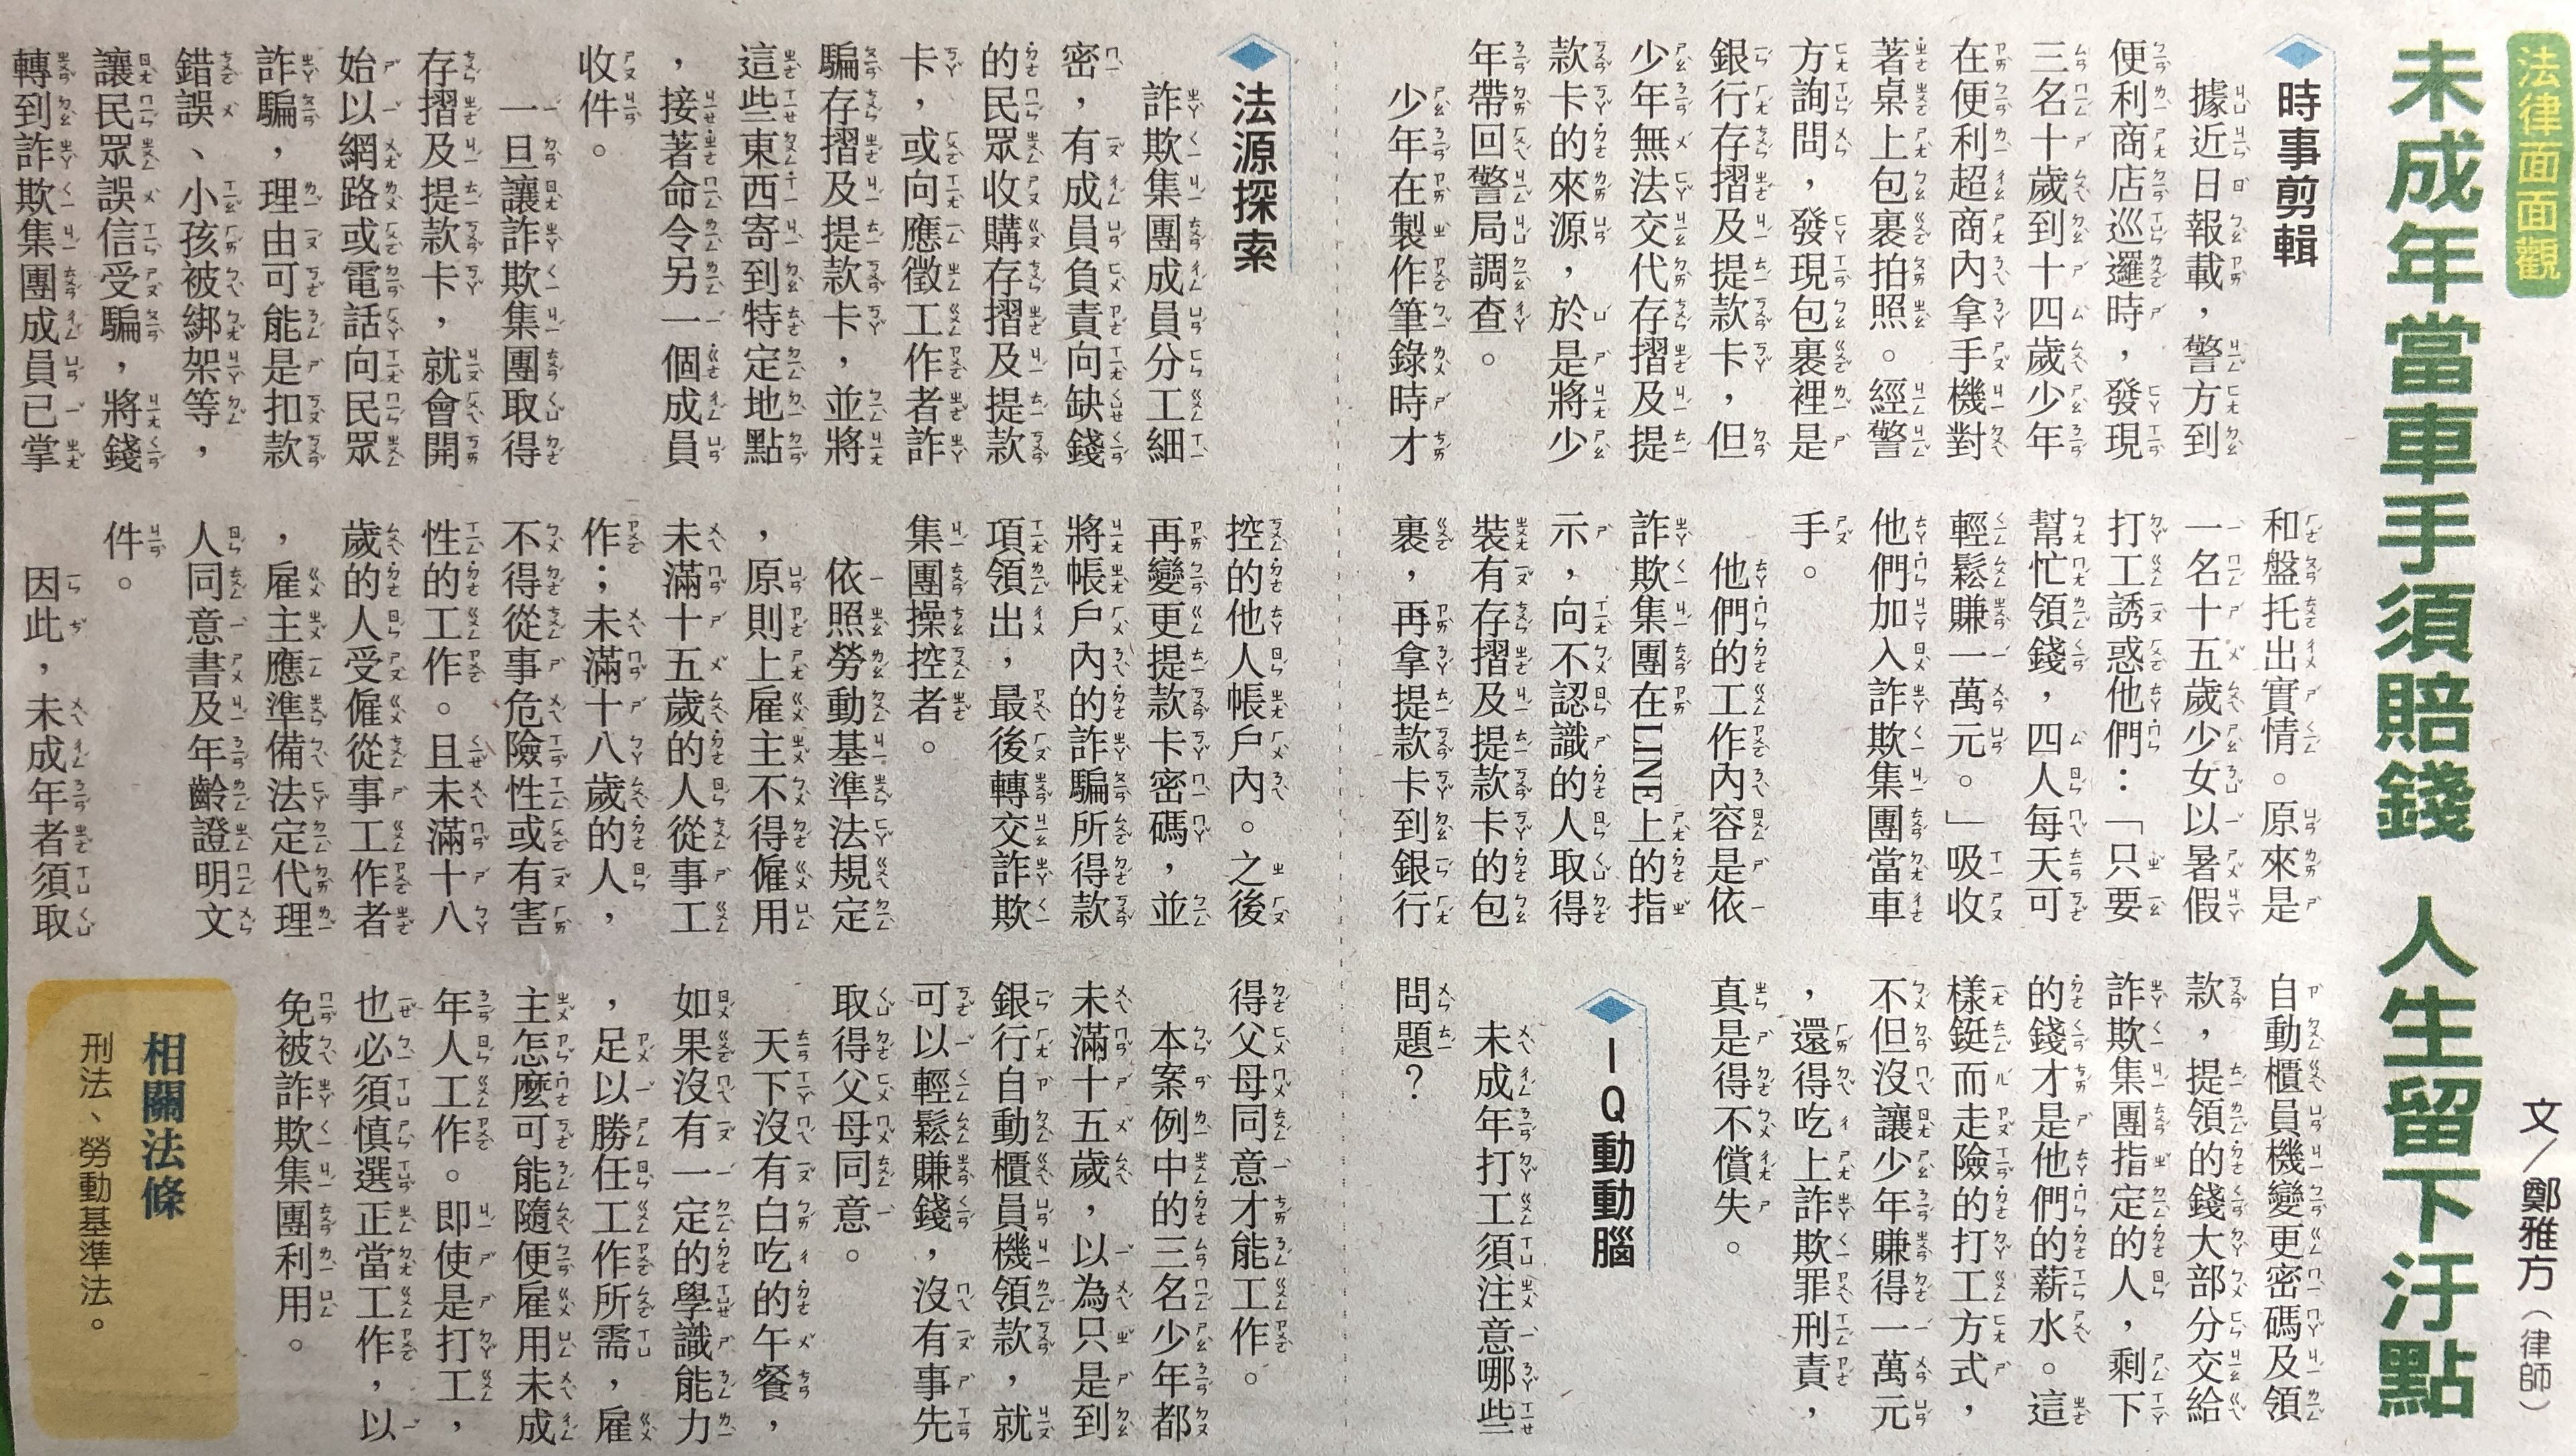 法律面面觀
未成年當車手須賠錢 人生留下汙點
文／鄭雅方（律師）
時事剪輯
據近日報載，警方到
便利商店巡邏時，發現
三名十歲到十四歲少年
在便利超商內拿手機對
著桌上包裹拍照。經警
方詢問，發現包裹裡是
銀行存摺及提款卡，但
少年無法交代存摺及提
款卡的來源，於是將少
年帶回警局調查。
少年在製作筆錄時才
和盤托出實情。原來是
一名十五歲少女以暑假
打工誘惑他們：「只要
幫忙領錢，四人每天可
輕鬆賺一萬元。」吸收
他們加入詐欺集團當車
手。
他們的工作內容是依
詐欺集團在LINE上的指
示，向不認識的人取得
裝有存摺及提款卡的包
裹，再拿提款卡到銀行
自動櫃員機變更密碼及領
款，提領的錢大部分交給
詐欺集團指定的人，剩下
的錢才是他們的薪水。這
樣鋌而走險的打工方式，
不但沒讓少年賺得一萬元
，還得吃上詐欺罪刑責，
真是得不償失。
IQ動動腦
未成年打工須注意哪些
問題？
法源探索
詐欺集團成員分工細
密，有成員負責向缺錢
的民眾收購存摺及提款
卡，或向應徵工作者詐
騙存摺及提款卡，並將
這些東西寄到特定地點
，接著命令另一個成員
收件。
一旦讓詐欺集團取得
存摺及提款卡，就會開
始以網路或電話向民眾
詐騙，理由可能是扣款
錯誤、小孩被綁架等，
讓民眾誤信受騙，將錢
轉到詐欺集團成員已掌
控的他人帳戶內。之後
再變更提款卡密碼，並
將帳戶內的詐騙所得款
項領出，最後轉交詐欺
集團操控者。
依照勞動基準法規定
，原則上雇主不得僱用
未滿十五歲的人從事工
作；未滿十八歲的人，
不得從事危險性或有害
性的工作。且未滿十八
歲的人受僱從事工作者
，雇主應準備法定代理
人同意書及年齡證明文
件。
因此，未成年者須取
得父母同意才能工作。
本案例中的三名少年都
未滿十五歲，以為只是到
銀行自動櫃員機領款，就
可以輕鬆賺錢，沒有事先
取得父母同意。
天下沒有白吃的午餐，
如果沒有一定的學識能力
，足以勝任工作所需，雇
主怎麼可能隨便雇用未成
年人工作。即使是打工，
也必須慎選正當工作，以
免被詐欺集團利用。
相關法條
刑法、勞動基準法。